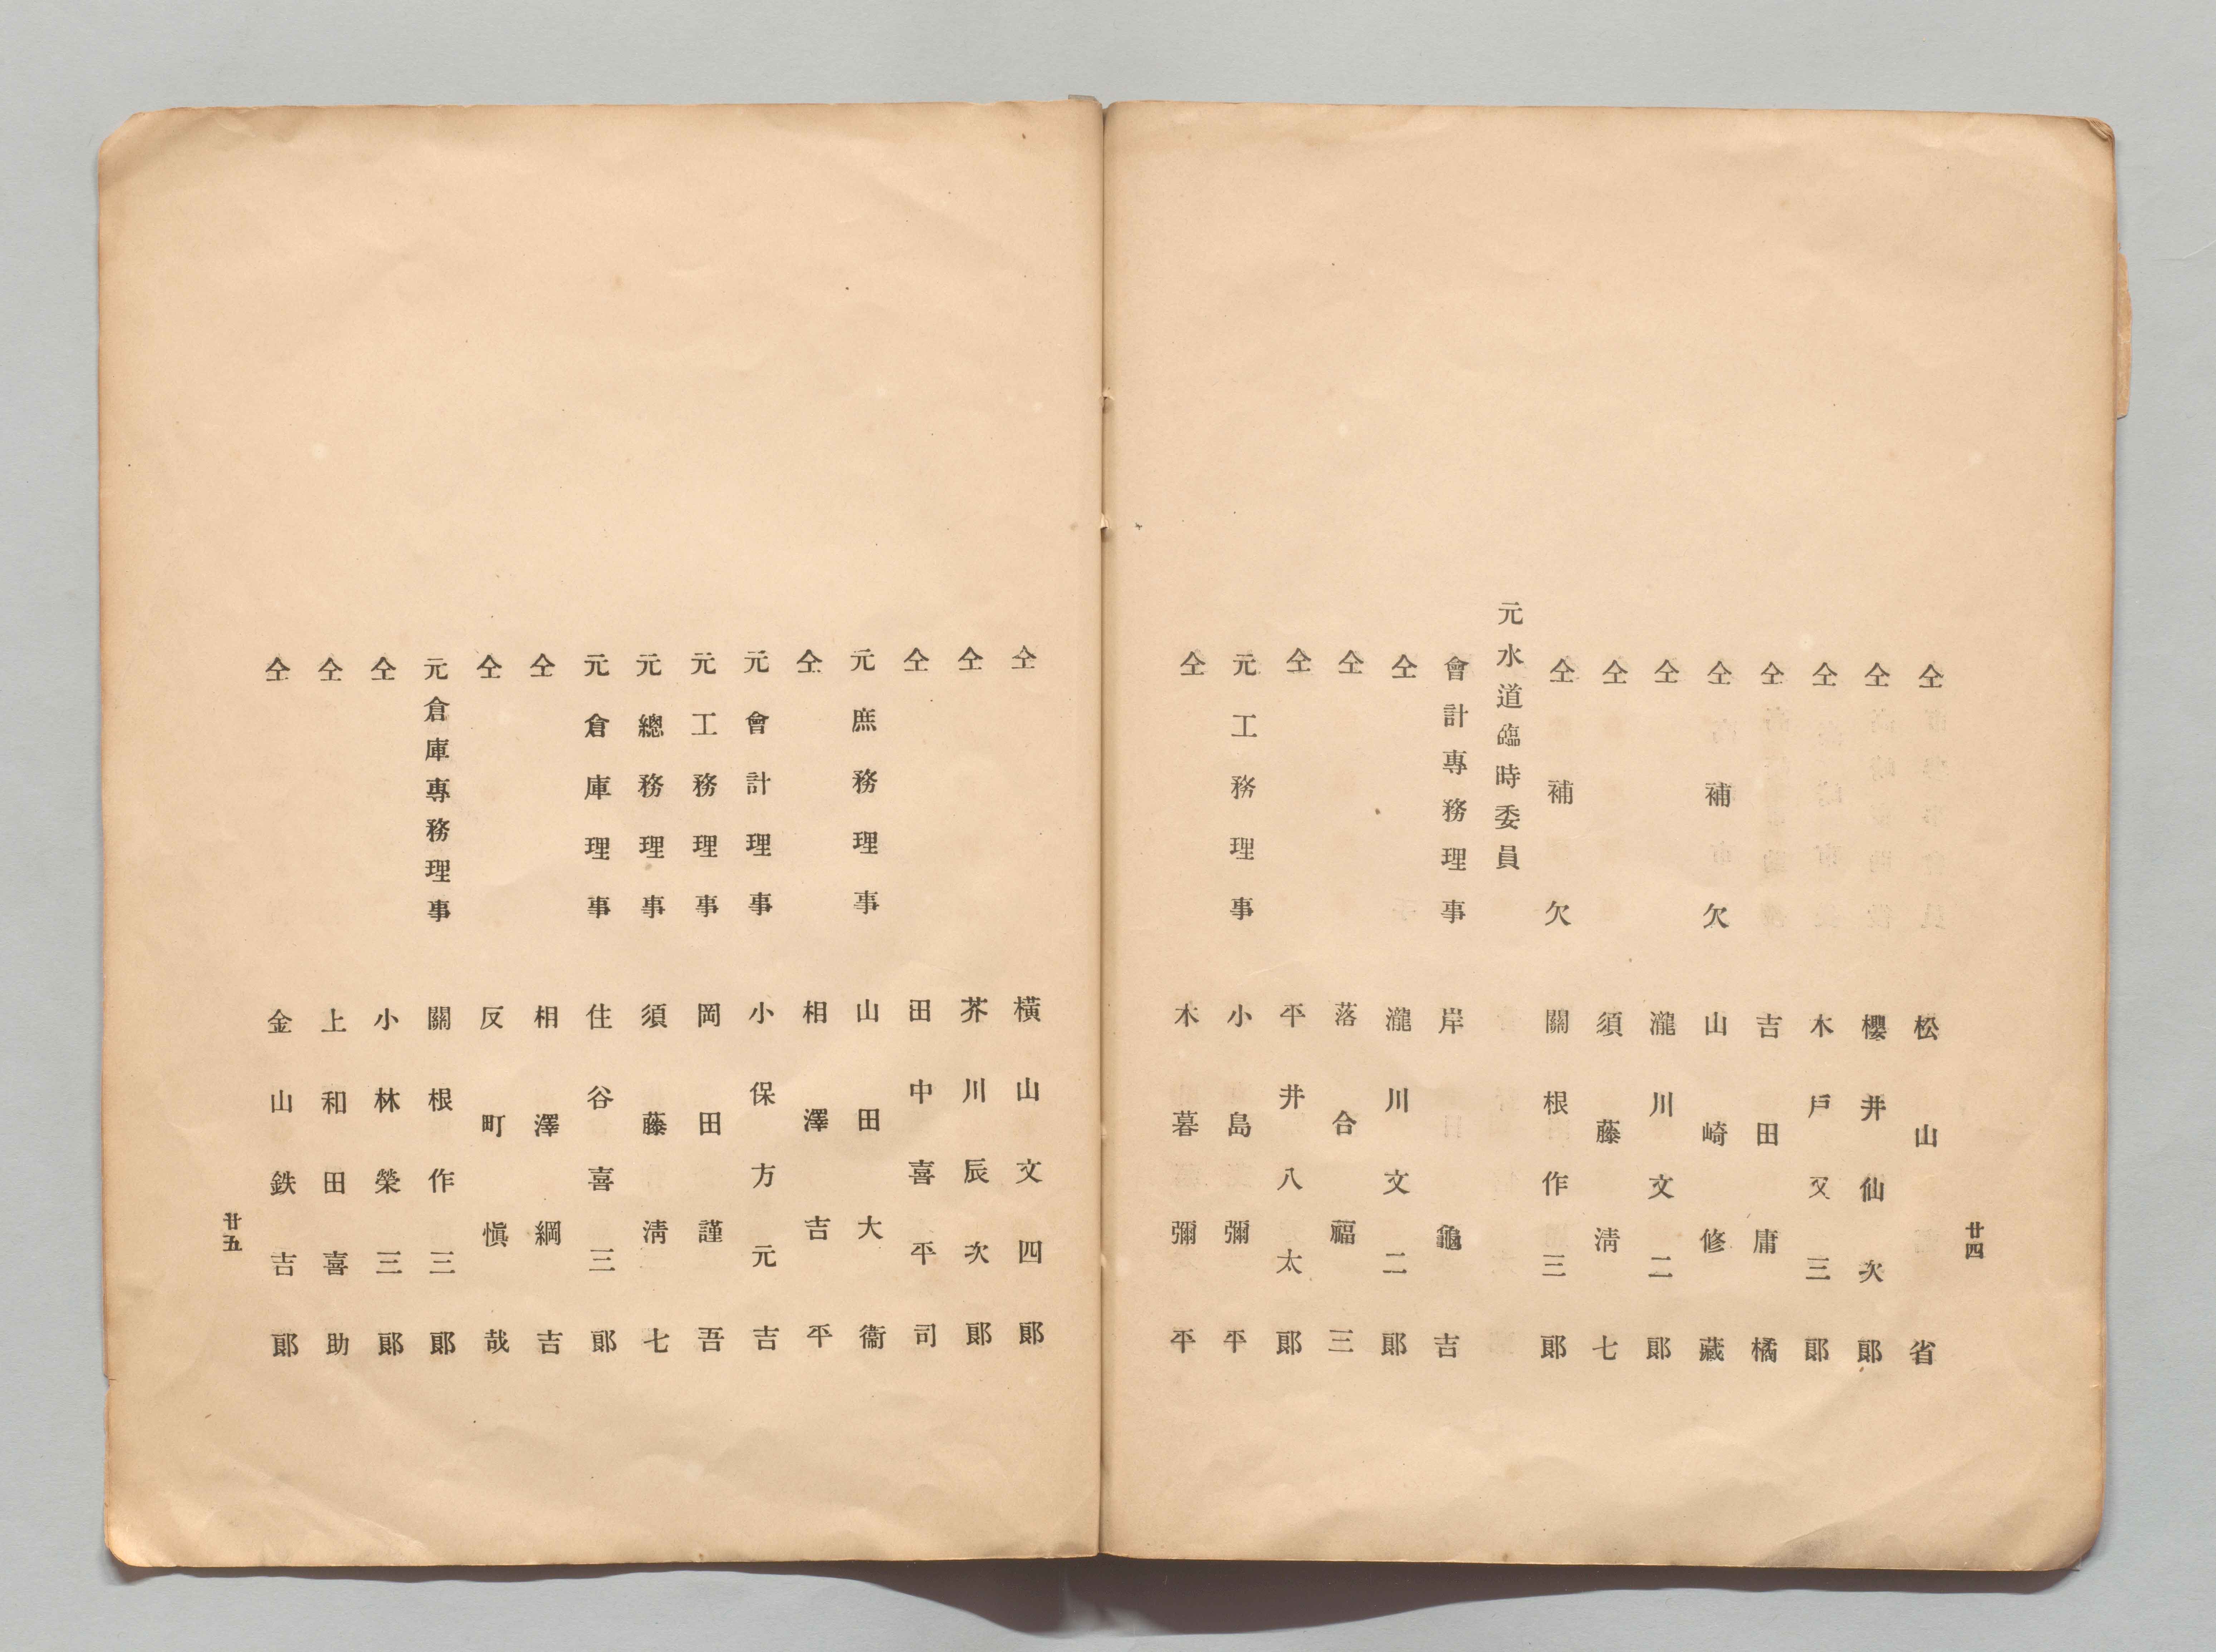 仝 松山省
仝 櫻井仙次郞
仝 木戶又三郞
仝 吉田庸橘
仝補欠 山崎修藏
仝 瀧川文二郞
仝 須藤淸七
仝補欠 關根作三郞
元水道臨時委員
會計專務理事 岸龜吉
仝 瀧川文二郞
仝 落合福三
仝 平井八太郞
元工務理事 小島彌平
仝 木暮彌平
廿四
仝 橫山文四郞
仝 芥川辰次郞
仝 田中喜平司
元庶務理事 山田大衞
仝 相澤吉平
元會計理事 小保方元吉
元工務理事 岡田謹吾
元總務理事 須藤淸七
元倉庫理事 住谷喜三郞
仝 相澤綱吉
仝 反町愼哉
元倉庫專務理事 關根作三郞
仝 小林榮三郞
仝 上和田喜助
仝 金山鉄吉郞
廿五